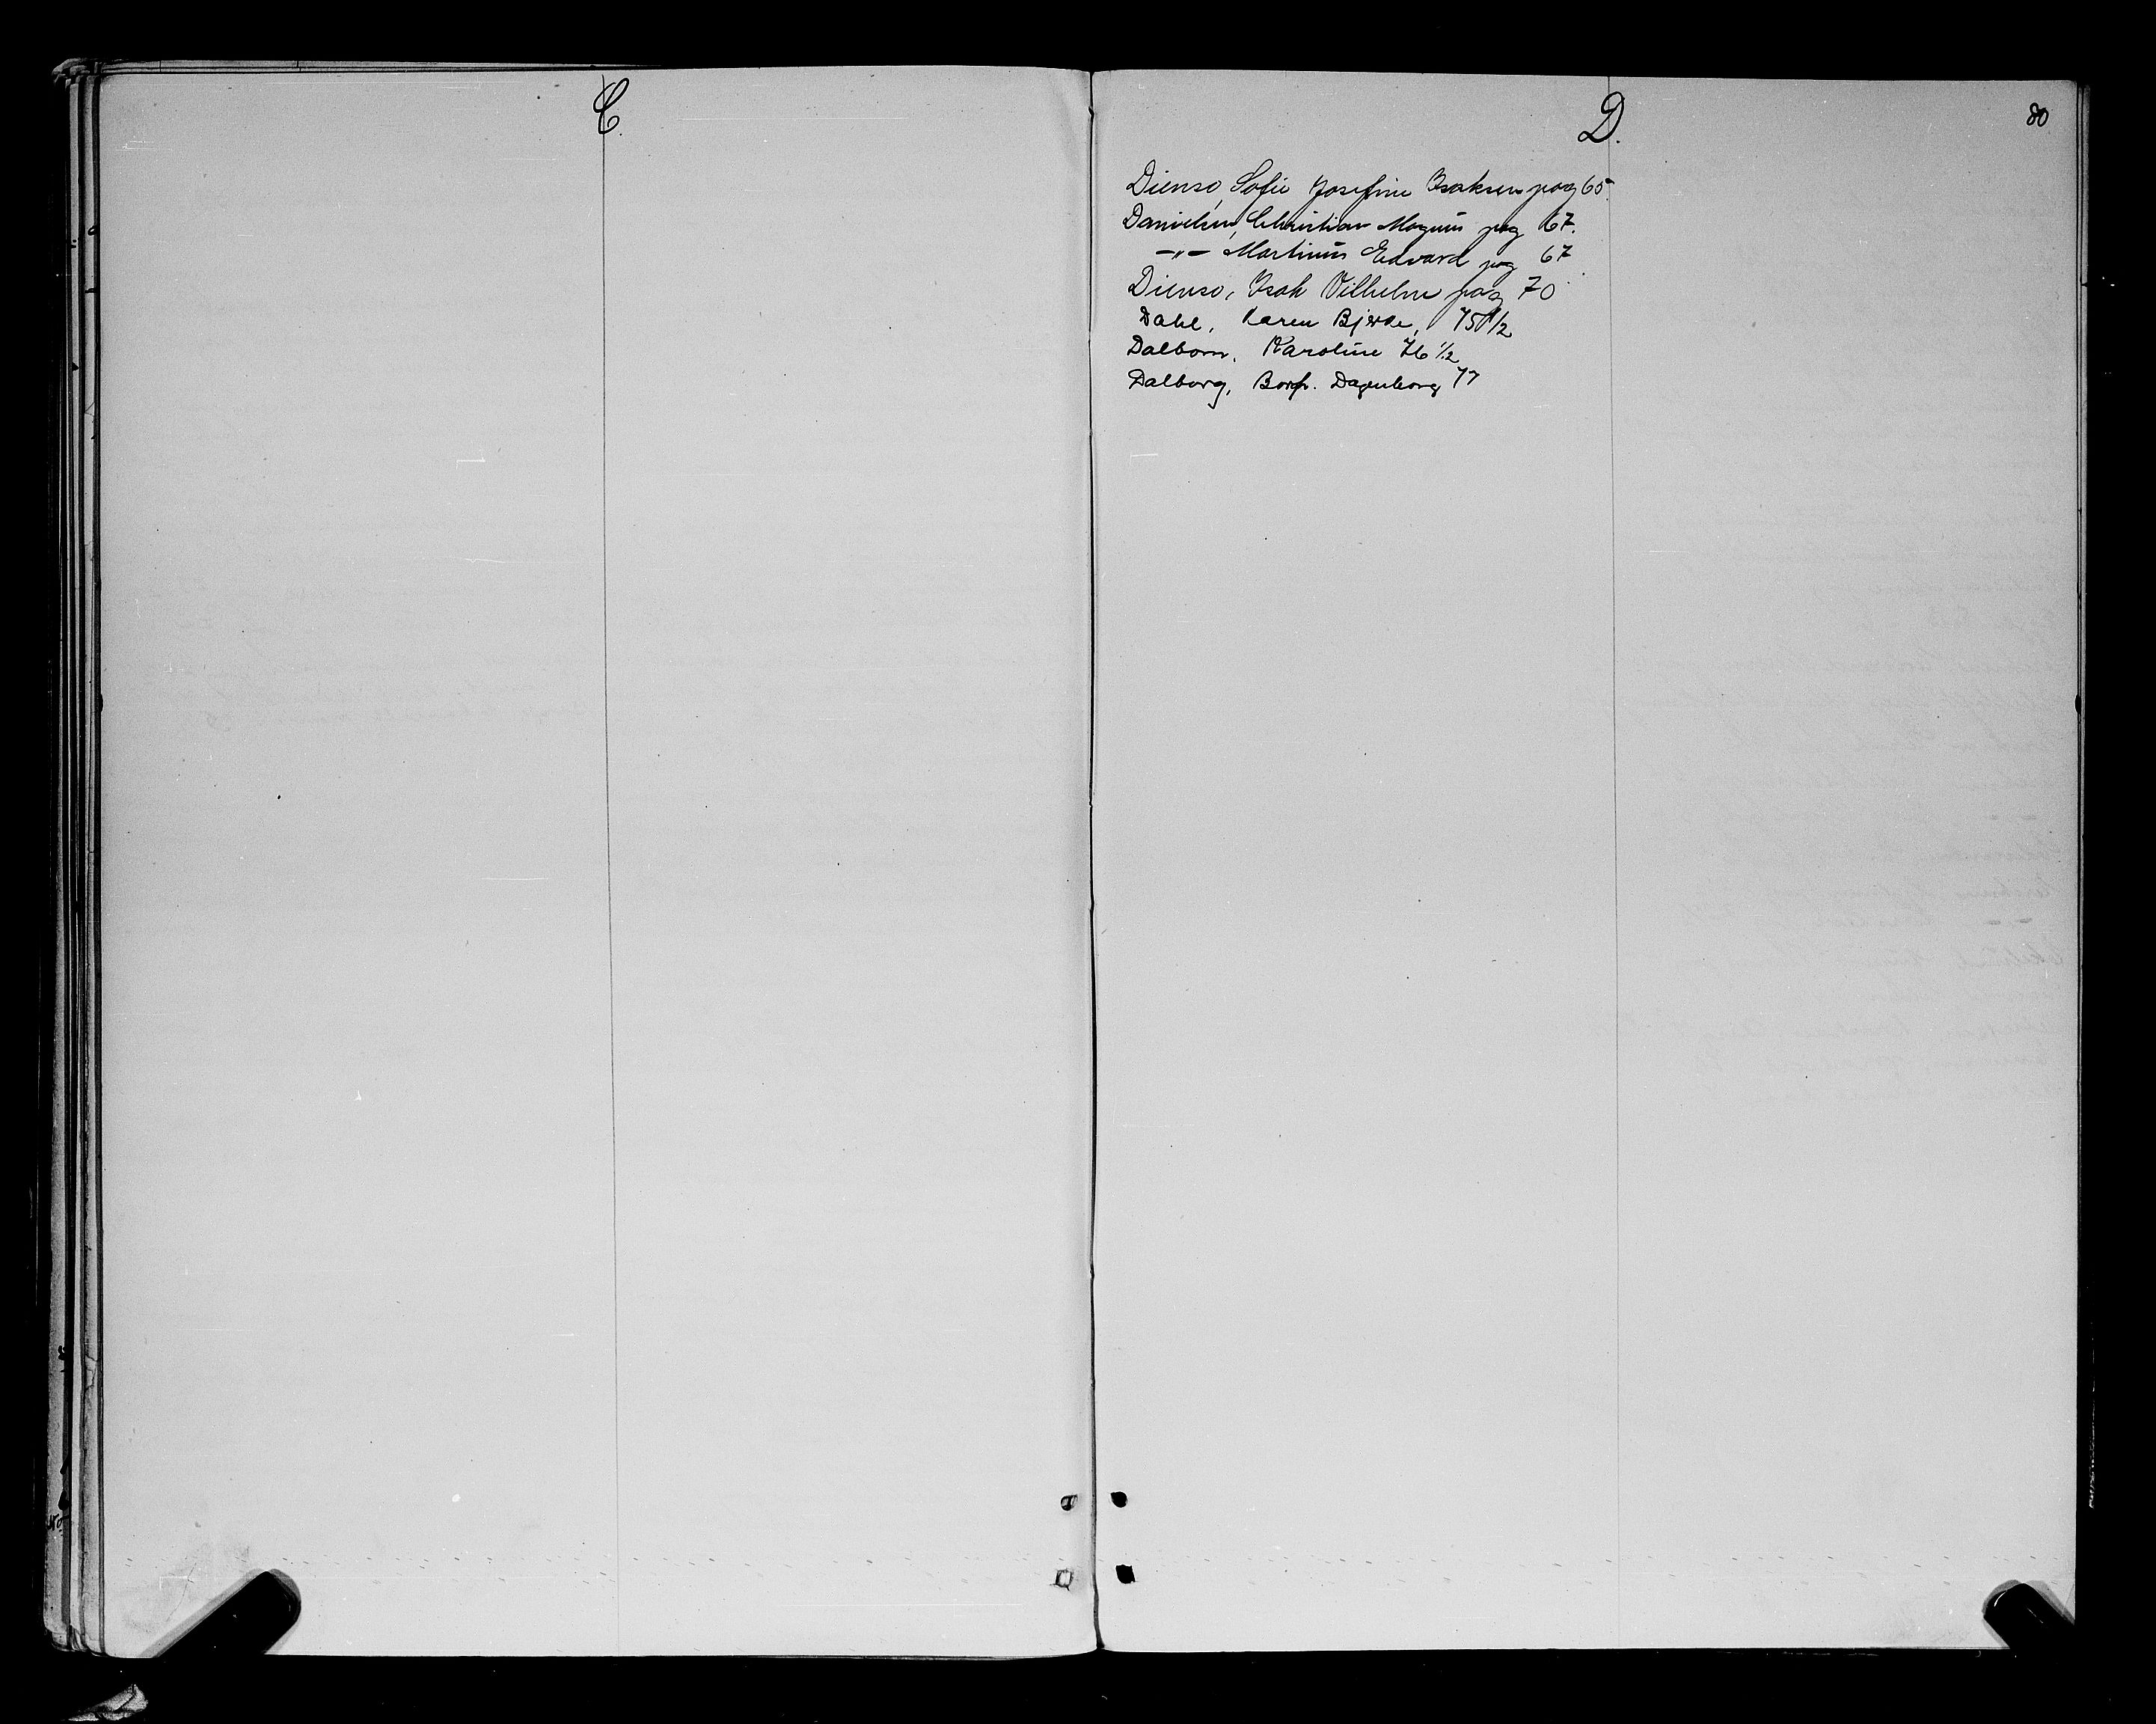 C.
D.
80
Dienso, Sofie Josefine Isaksen pag 65.
Danielsen, Christian Magnus pag 67.
—"— Martinus Edvard pag 67
Dienso, Isak Vilhelm pag 70
Dahl, Karen Bjerke, 75 1/2
Dalbom, Karoline 76 1/2
Dalborg, Dagenborg 77